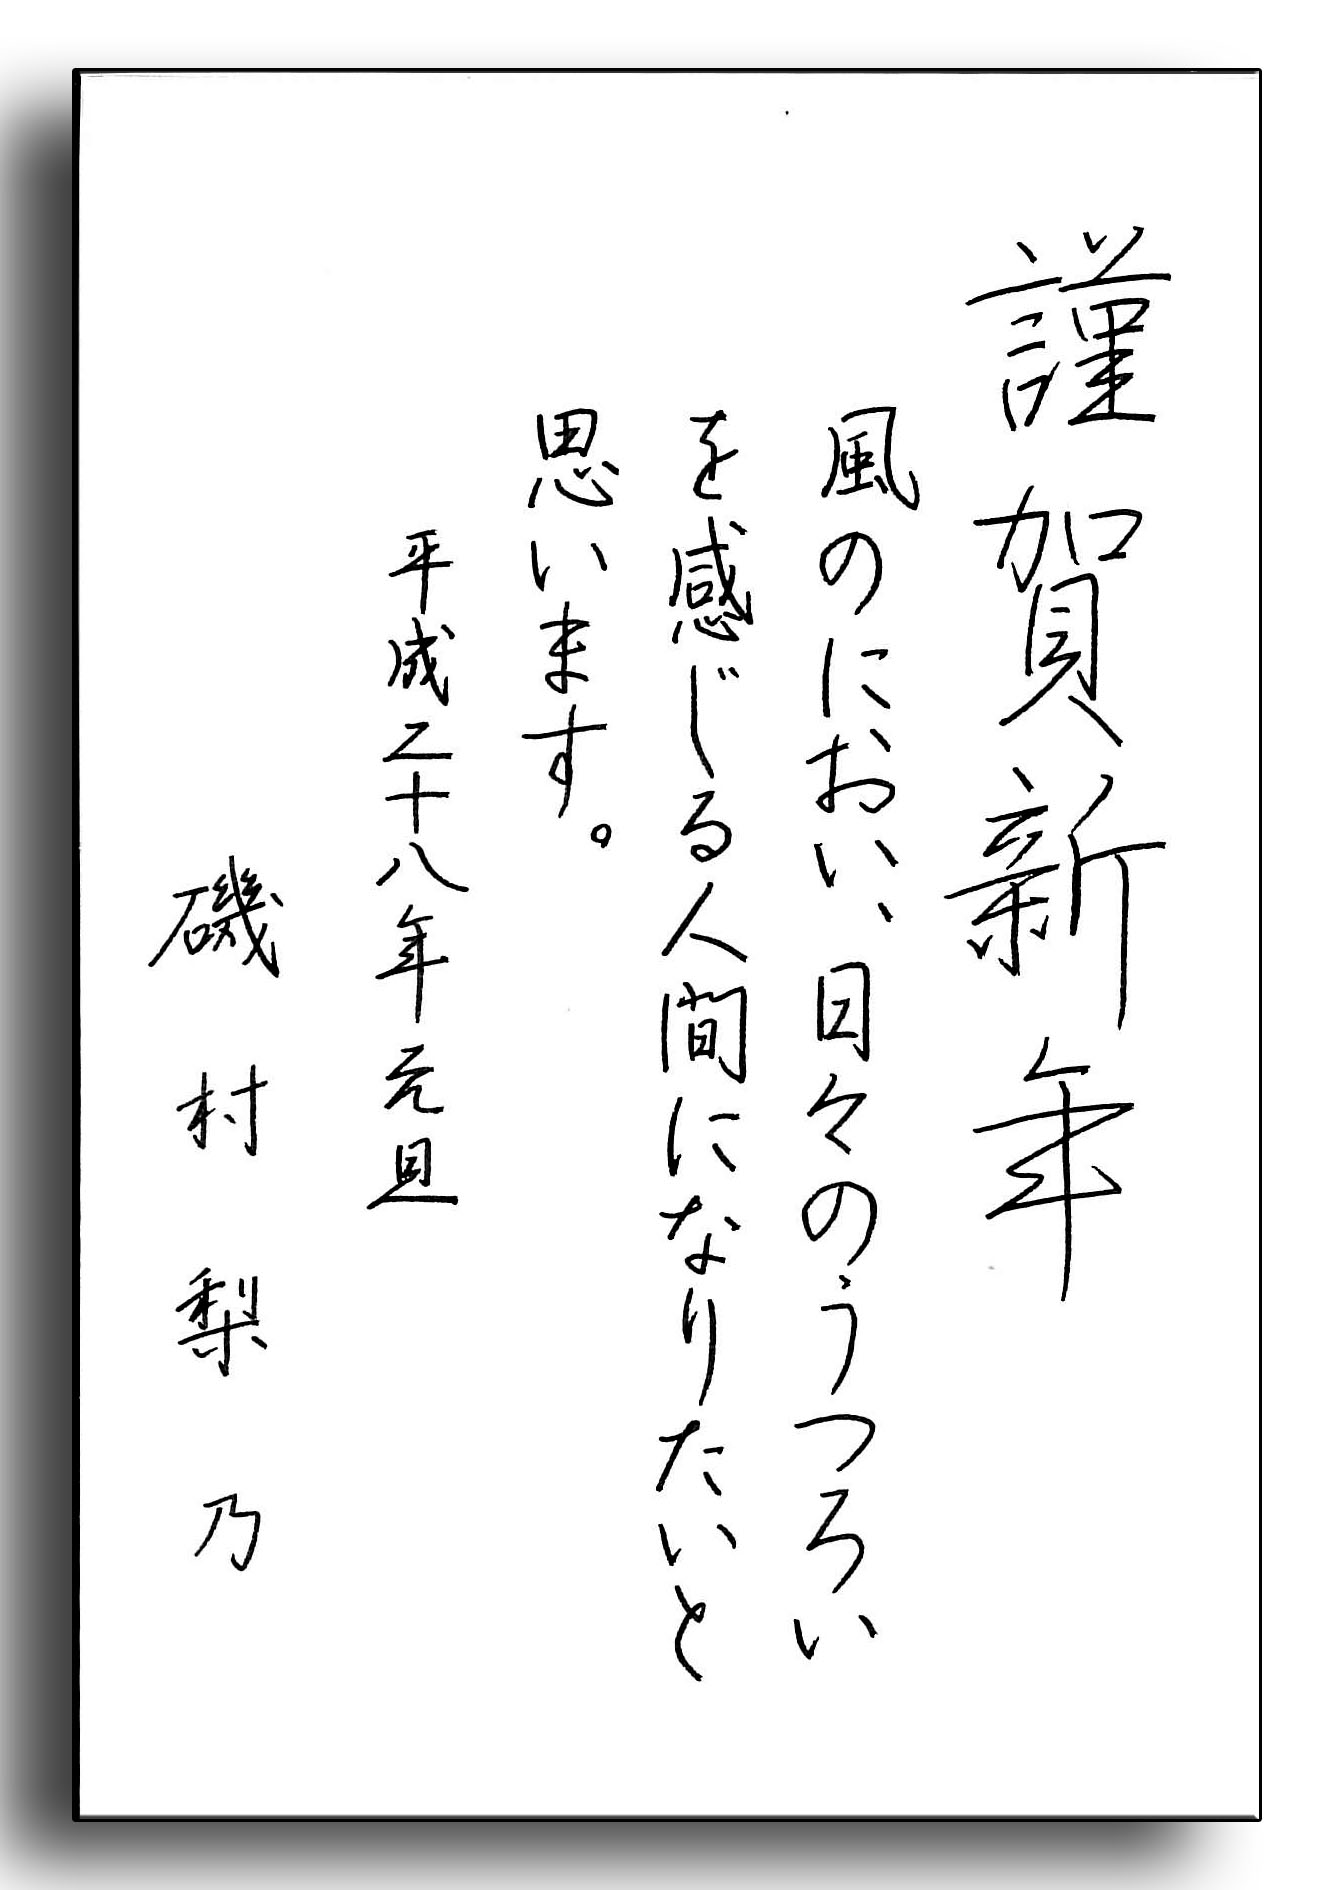 謹賀新年
風のにおい、日々のうつろい
を感じる人間になりたいと
思います。
平成二十八年元旦
磯村梨乃